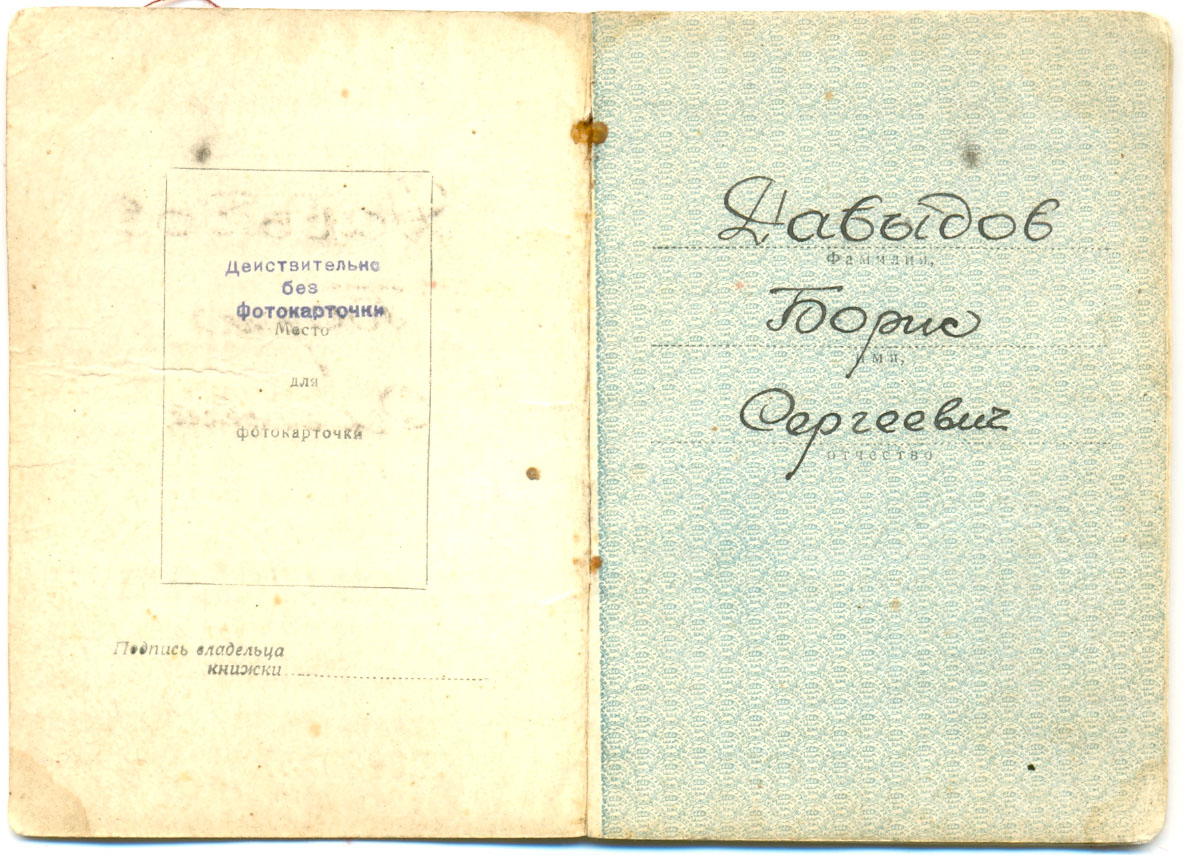 Действительно
без
фотокарточки
Место
для
фотокарточки
Подпись владельца
книжки
Давыдов
Фамилия,
Борис
имя,
Сергеевич
отчество